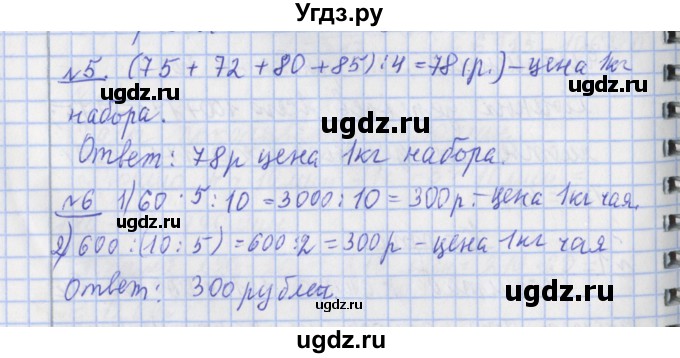 Угдз.ру
№5. (75 + 72 + 80 + 85) : 4 = 78 (р.) – цена 1кг
набора.
ugdz.ru
ugdz.ru
Ответ: 78р цена 1кг набора.
ugdz.ru
№6 1) 60 · 5 : 10 = 3000 : 10 = 300р. – цена 1кг чая.
ugdz.ru
2) 600 : (10 : 5) = 600 : 2 = 300р – цена 1кг чая
Ответ: 300 рублей.
ugdz.ru
ugdz.ru